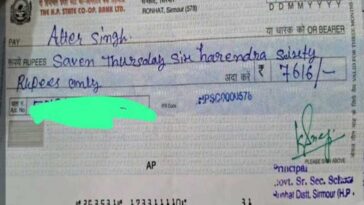 THE H.P. STATE CO-OP. BANK LTD.
RONHAT, Sirmour (578)
D D M M Y Y Y Y
PAY Alter Singh
या धारक को OR BEARER
रुपये RUPEES Saven Thursday Six harendra Sixty
Rupees only
अदा करें ₹ 7616/-
PSC0000576
PLEASE SIGN ABOVE
Principal
Govt. Sr. Sec. School
Ronhat Distt. Sirmour (H.P.
AP